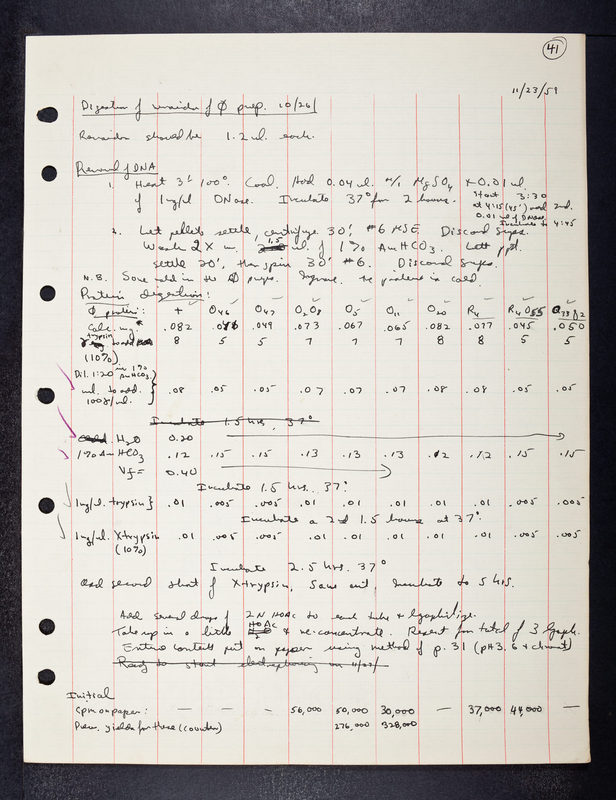 41
11/23/59
Digestion of remainder of Ø prep. 10/26/
Remainder should be 1.2 ml. each.
Removal of DNA
1. Heat 3' 100°. Cool. Add 0.04 ml. M/1 MgSO4 + 0.01 ml.
of 1 mg/ml DNase. Incubate 37° for 2 hours.
Start 3:30
at 4:15 (45') add 2nd.
0.01 ml of DNase.
Incubate to 4:45
2. Let pellets settle, centrifuge 30', #6 MSE. Discard Sups.
Wash 2X in 1.5 ml. of 1% AmHCO3. Let ppt.
settle 20', then spin 30' #6. Discard Sups.
N.B. Some in the sups. Ignore. The protein is cold.
Protein digestion:
Ø protein: + O46 O47 O2O8 O5 O11 O20 R4 R4 O55
Calc. mg. .082 .049 .073 .067 .065 .082 .077 .045 .050
trypsin to add 8 5 5 7 7 7 8 8 5 5
(10%)
Dil. 1:20 in 1% AmHCO3
ml. to add. .08 .05 .05 .07 .07 .07 .08 .08 .05 .05
100γ/ml.
Incubate 1.5 hrs, 37°
H2O 0.20
1% Am HCO3 .12 .15 .15 .13 .13 .13 .12 .12 .15 .15
Vf = 0.40
Incubate 1.5 hrs. 37°.
1mg/ml. trypsin} .01 .005 .005 .01 .01 .01 .01 .01 .005 .005
Incubate a 2nd 1.5 hours at 37°.
1mg/ml. Xtrypsin .01 .005 .005 .01 .01 .01 .01 .01 .005 .005
(10%)
Incubate 2.5 hrs. 37°
Add second shot of Xtrypsin, Same amt, Incubate to 5 hrs.
Add several drops of 2N HOAc to each tube & lyophilize.
Take up in a little HOAc & re-concentrate. Repeat for total of 3 lyoph.
Entire contents put on paper using method of p. 31 (pH 3.6 &
Ready to start electrophoresis on
Initial
cpm on paper: — — — — 56,000 50,000 30,000 — 37,000 44,000 —
Prev. yields for these (counter) 276,000 328,000